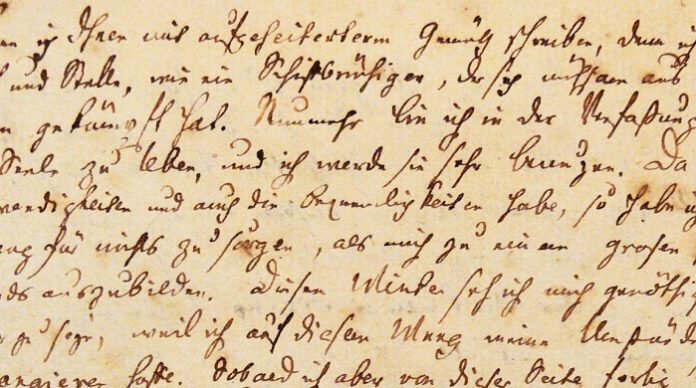 ich Ihnen mit aufgeheitertem Gemüth schreiben, denn ich
und Stelle, wie ein Schiffbrüchiger, der sich mühsam aus
gekämpft hat. Nunmehr bin ich in der Verfaßung
Seele zu leben, und ich werde sie sehr benuzen. Da
wendigkeiten und auch die Bequemlichkeiten habe, so habe ich
für nichts zu sorgen, als mich zu einem grosen
auszubilden. Diesen Winter seh ich mich genöthi
zu seyn, weil ich auf diesem Weeg meine Umstände
rangieren hoffe. Sobald ich aber von dieser Seite fertig